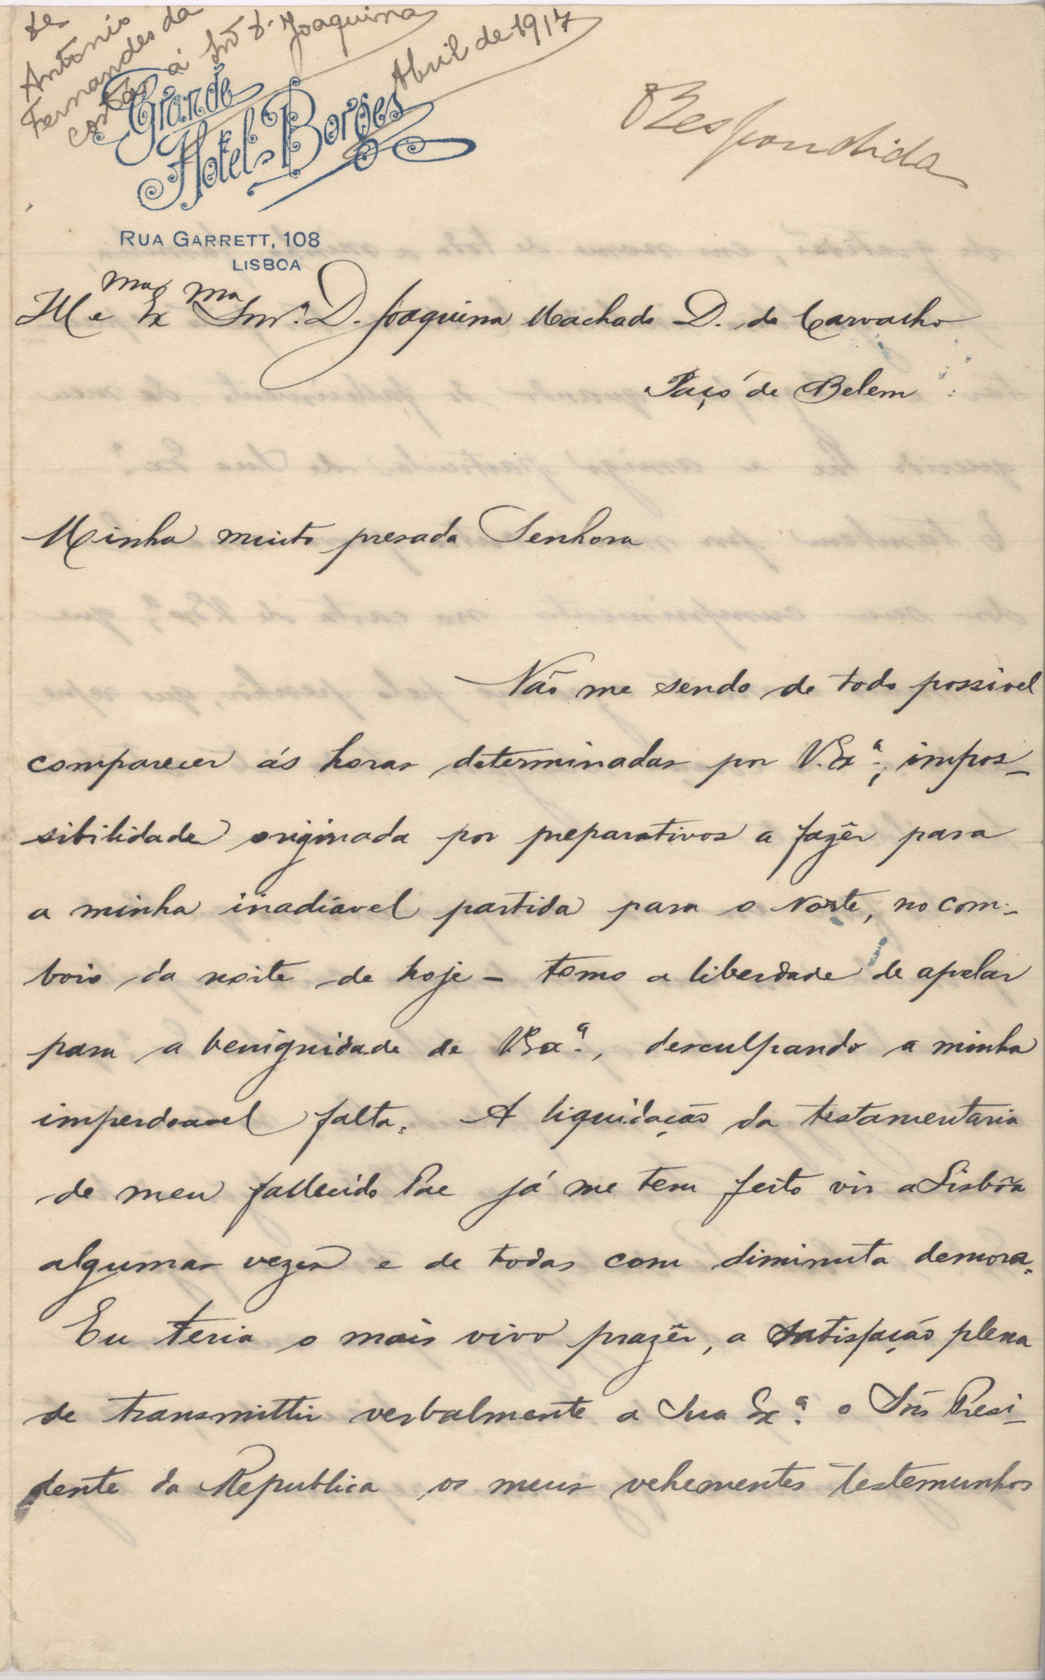 de
Antonio
Fernandes da
Costa á Snrª D. Joaquina
Abril de 1917
Respondida
Grande
Hotel Borges
RUA GARRETT, 108
LISBOA
Illma e Exma Snrª. D. Joaquina Machado D. de Carvalho
Paço de Belem
Minha muito presada Senhora
Não me sendo de todo possivel
comparecer ás horas determinadas por V. Exª., impos-
sibilidade originada por preparativos a fazêr para
a minha inadiavel partida para o Norte, no com-
boio da noite de hoje - tomo a liberdade de apelar
para a benignidade de V Exª., desculpando a minha
imperdoavel falta. A liquidação da testamentaria
de meu fallecido Pae já me tem feito vir a Lisbôa
algumas vezes e de todas com diminuta demora.
Eu teria o mais vivo prazêr, a satisfação plena
de transmittir verbalmente a Sua Exª. o Snr Presi-
dente da Republica os meus vehementes testemunhos